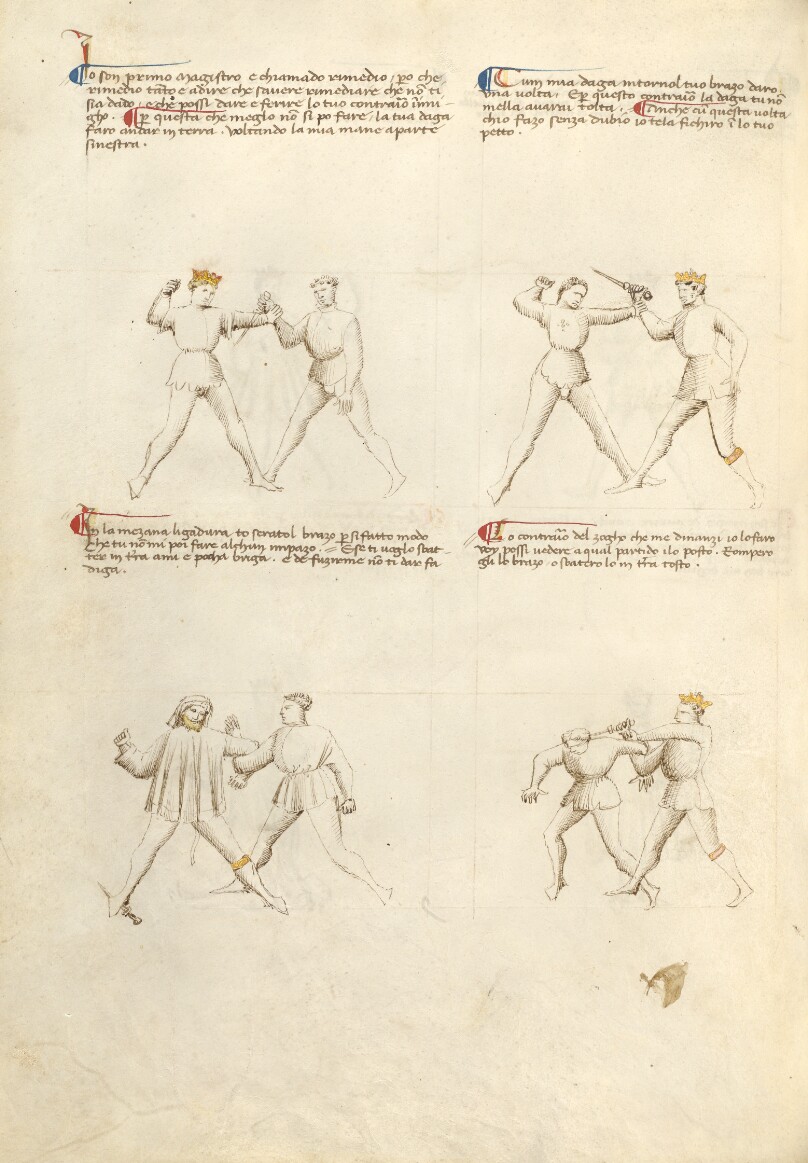 Io son primo magistro e chiamado rimedio, po che
rimedio tãto e adire che savere rimediare che nõ ti
sia dado, e che possi dare e ferire lo tuo contraiõ inimi-
gho. Per questa che meglio nõ si po fare, la tua daga
faro andar in terra. voltando la mia mane aparte
sinestra.
Cum mia daga intorno l tuo brazo daro
una volta. E per questo contraiõ la daga tu nõ
mella avarai tolta. Anche cũ questa volta
chio fazo senza dubio io te la fichiro ĩ lo tuo
petto.
In la mezana ligadura to serato l brazo per si fatto modo
che tu nõ mi poi fare alchun impazo. E se ti voglio sbat-
ter in tr̃a ami e pocha briga. e de fuzirme nõ ti dar fa
diga.
Lo contraiõ del zogho che me dinanzi io lo faro
voy possi vedere a qual partido i lo posto. Rompero
gli lo brazo, o sbatero lo in tr̃a tosto.